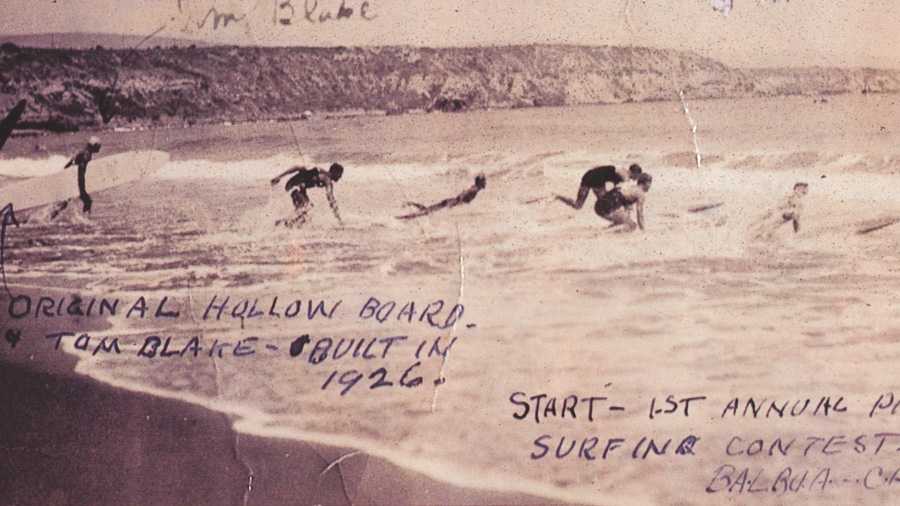 Tom Blake
ORIGINAL HOLLOW BOARD.
& TOM BLAKE - BUILT IN
1926.
START - 1-ST ANNUAL
SURFING CONTEST
BALBOA -- CA